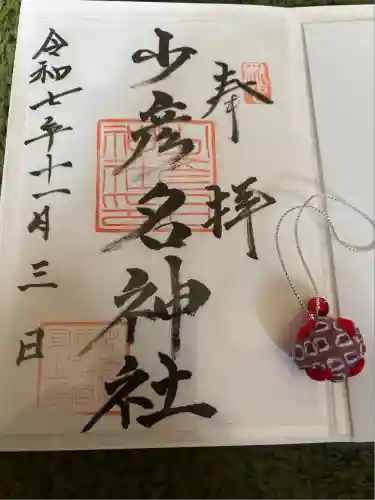 奉拝
少彦名神社
令和七年十一月三日